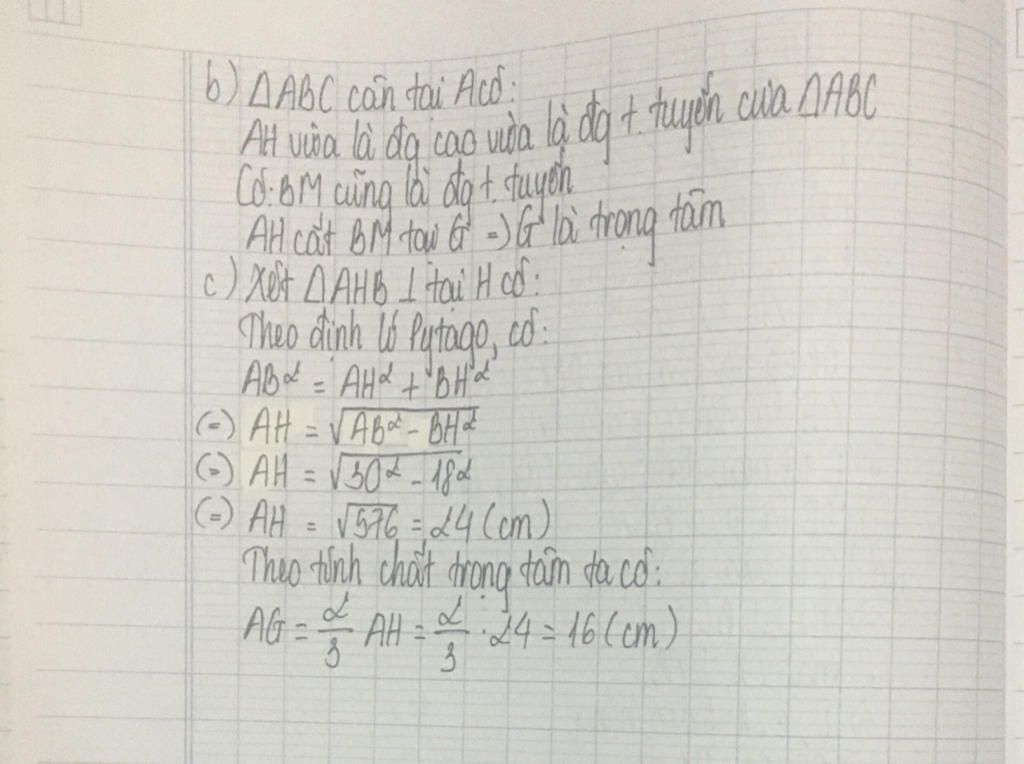 b) ΔABC cân tại A có:
AH vừa là đg cao vừa là đg t. tuyến của ΔABC
Có: BM cũng là đg t. tuyến
AH cắt BM tại G => G là trọng tâm
c) Xét ΔAHB ⊥ tại H có:
Theo định lí Pytago, có:
AB² = AH² + BH²
(=) AH = √(AB² - BH²)
(=) AH = √(30² - 18²)
(=) AH = √576 = 24 (cm)
Theo tính chất trọng tâm ta có:
AG = 2/3 AH = 2/3 · 24 = 16 (cm)